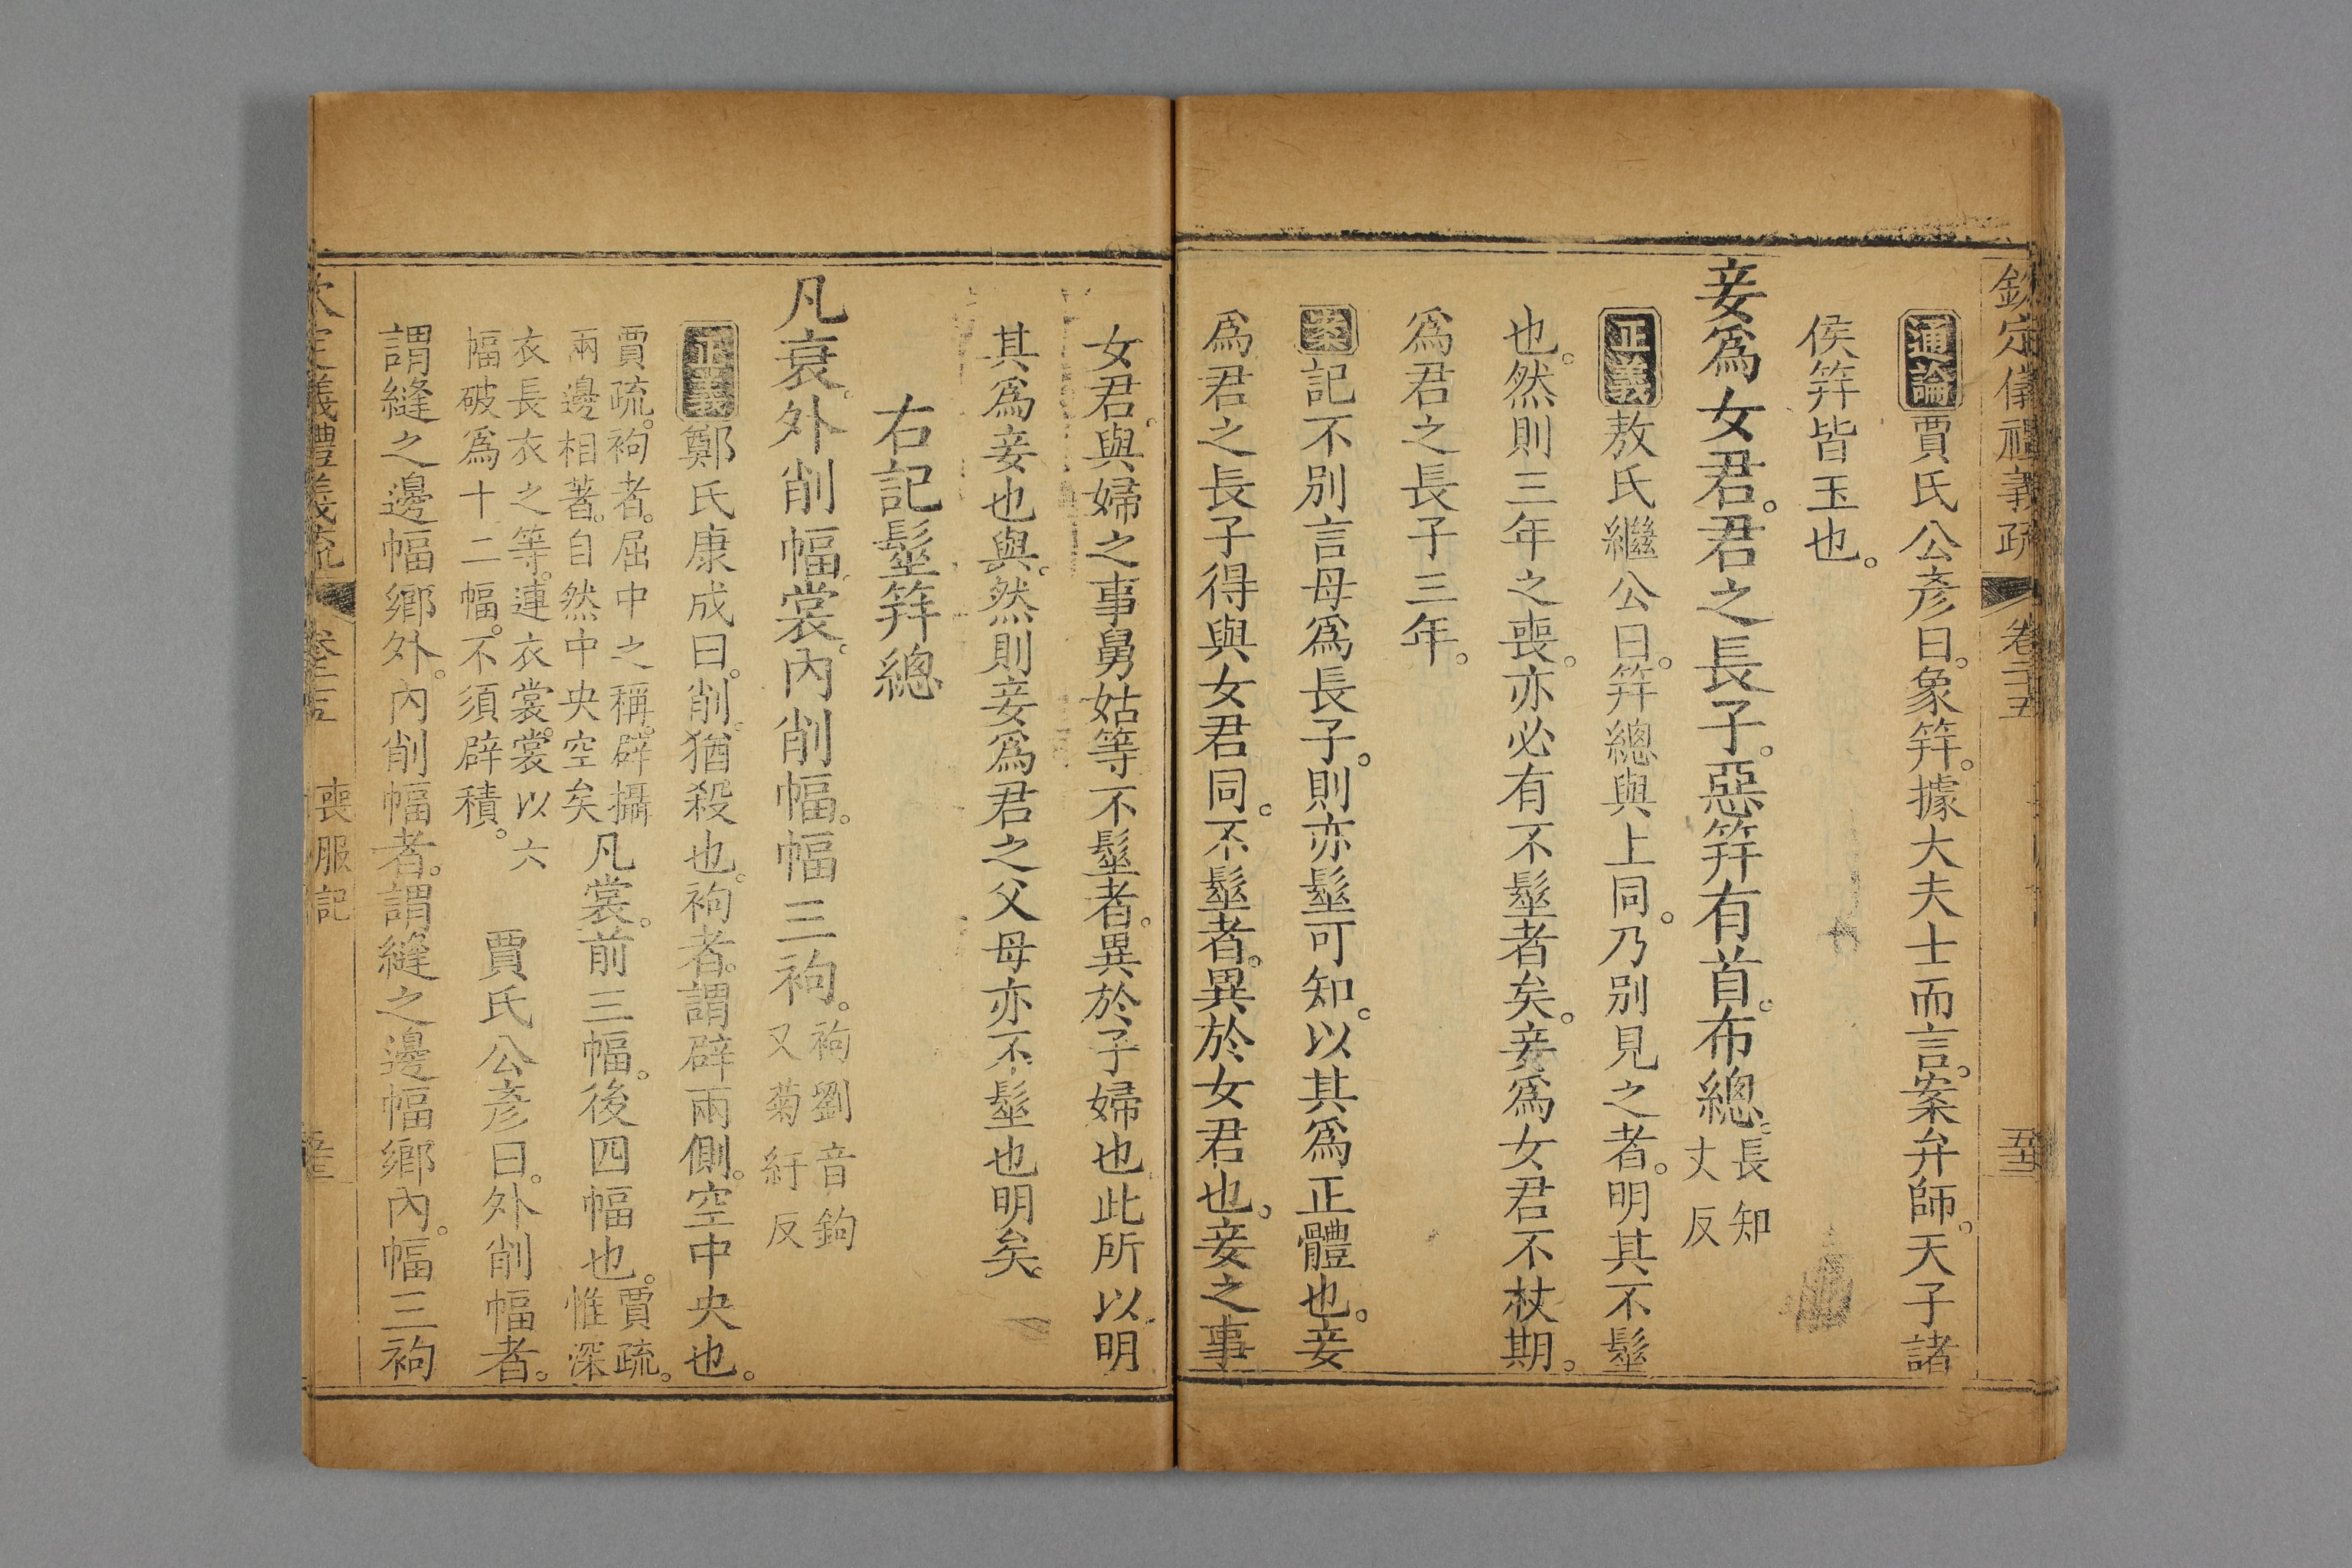 欽定儀禮義疏 卷二十五
通論賈氏公彥曰。象笄。據大夫士而言。案弁師。天子諸
侯笄皆玉也。
妾爲女君。君之長子。惡笄有首。布總。長知丈反
正義敖氏繼公曰。笄總與上同。乃別見之者。明其不髽
也。然則三年之喪。亦必有不髽者矣。妾爲女君不杖期。
爲君之長子三年。
案記不別言母爲長子。則亦髽可知。以其爲正體也。妾
爲君之長子得與女君同。不髽者。異於女君也。妾之事
女君。與婦之事舅姑等。不髽者。異於子婦也此所以明
其爲妾也與。然則妾爲君之父母亦不髽也明矣。
右記髽笄總
凡衰。外削幅。裳。內削幅。幅三袧。袧劉音鉤又菊紆反
正義鄭氏康成曰。削。猶殺也。袧者。謂辟兩側。空中央也。
賈疏。袧者。屈中之稱。辟攝兩邊相著。自然中央空矣凡裳。前三幅。後四幅也。賈疏。惟深
衣長衣之等。連衣裳。裳以六幅破爲十二幅。不須辟積。賈氏公彥曰。外削幅者。
謂縫之邊幅鄉外。內削幅者。謂縫之邊幅鄉內。幅三袧
喪服記